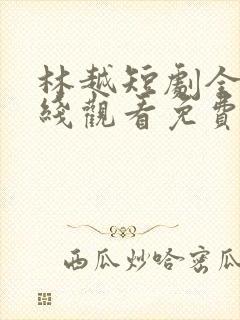 林越短劇全
綫觀看免費
西瓜炒哈密瓜